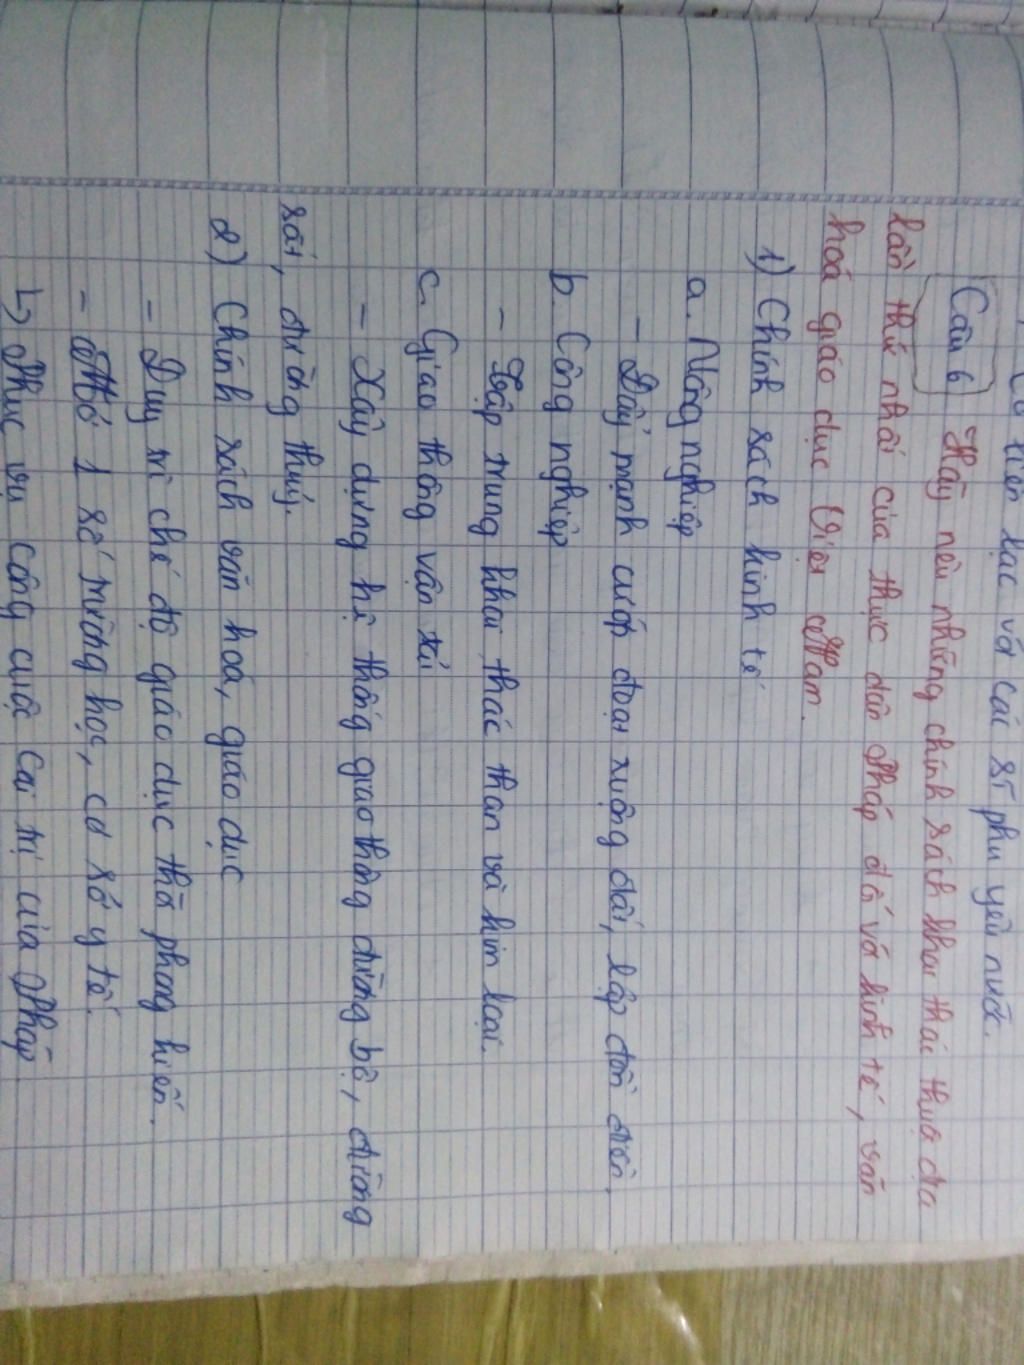 liên lạc với các sĩ phu yêu nước.
Câu 6 Hãy nêu những chính sách khai thác thuộc địa
lần thứ nhất của thực dân Pháp đối với kinh tế, văn
hoá giáo dục Việt Nam.
1) Chính sách kinh tế
a. Nông nghiệp
- Đẩy mạnh cướp đoạt ruộng đất, lập đồn điền.
b. Công nghiệp
- Tập trung khai thác than và kim loại.
c. Giao thông vận tải
- Xây dựng hệ thống giao thông đường bộ, đường
sắt, đường thuỷ.
2) Chính sách văn hoá, giáo dục
- Duy trì chế độ giáo dục thời phong kiến.
- Mở 1 số trường học, cơ sở y tế.
↳ Phục vụ công cuộc cai trị của Pháp